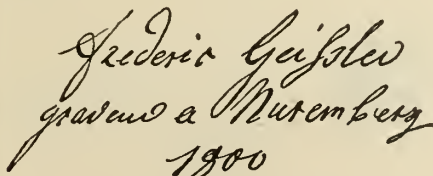 Frederic Geißler
graveur a Nuremberg
1800